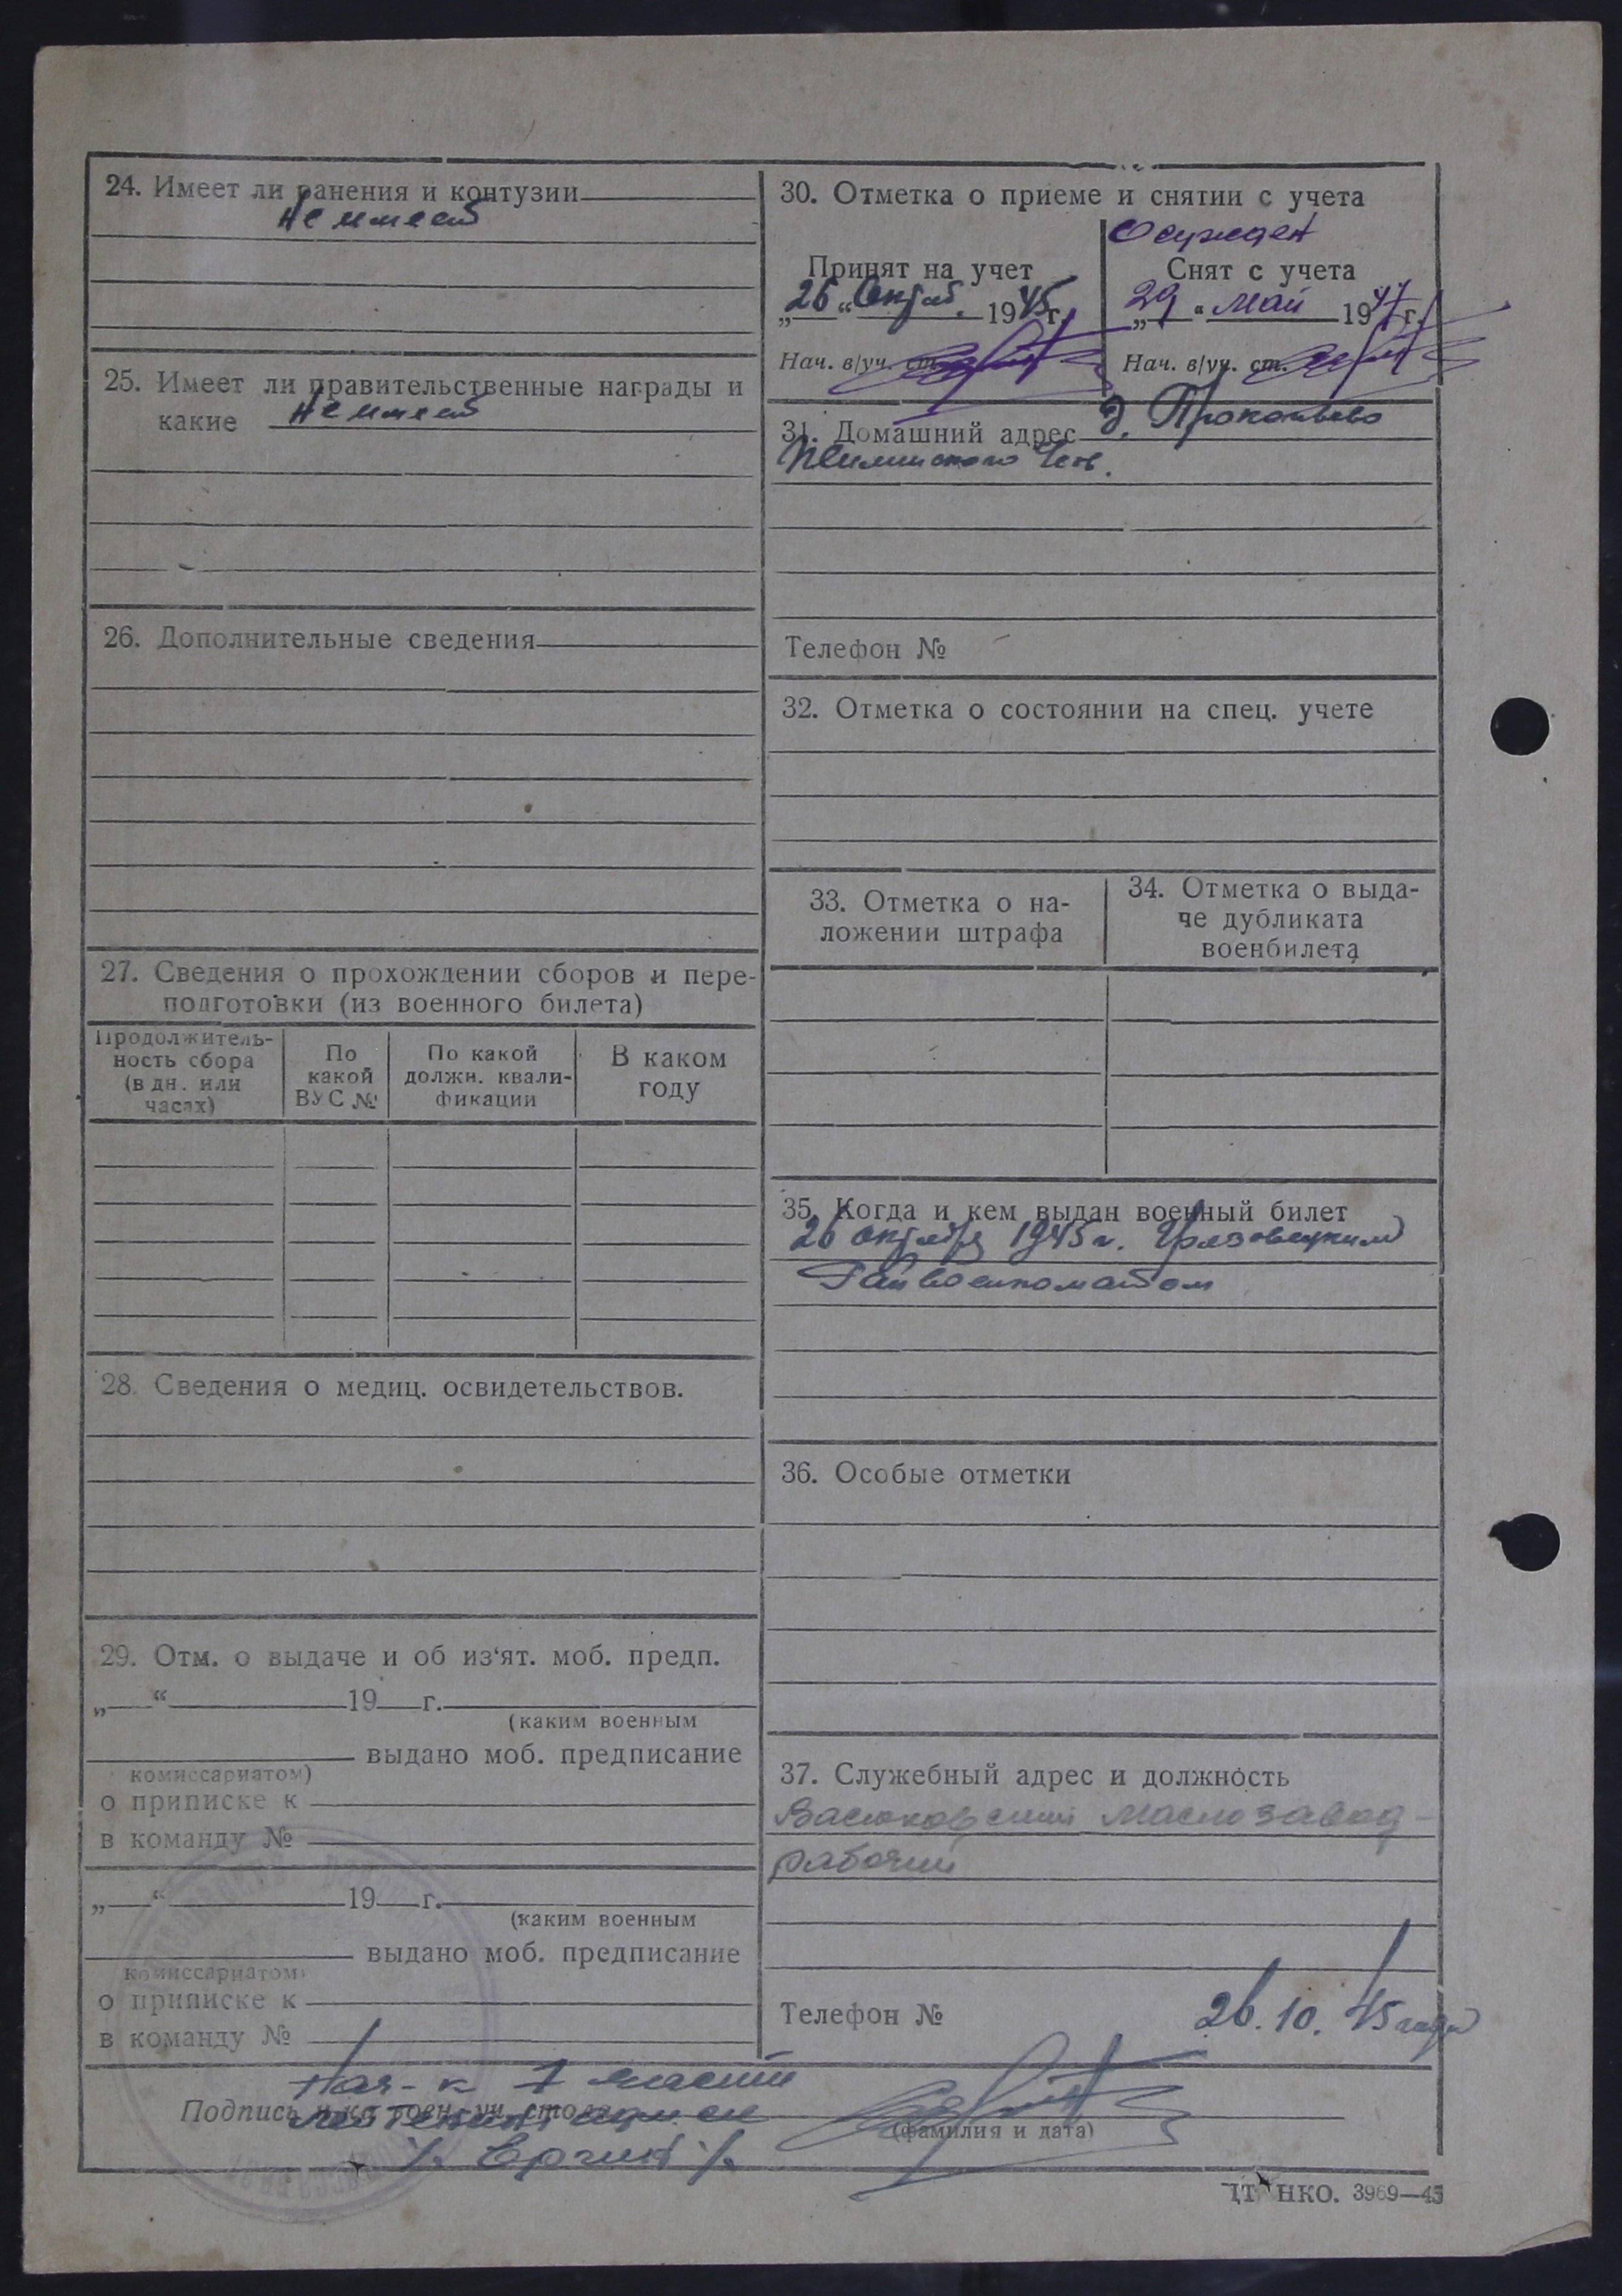 24. Имеет ли ранения и контузии
не имеет
25. Имеет ли правительственные награды и
какие не имеет
26. Дополнительные сведения
27. Сведения о прохождении сборов и пере-
подготовки (из военного билета)
Продолжитель-
ность сбора
(в дн. или
часах)
По
какой
ВУС №
По какой
должн. квали-
фикации
В каком
году
28. Сведения о медиц. освидетельствов.
29. Отм. о выдаче и об из'ят. моб. предп.
„ “ 19 г.
(каким военным
выдано моб. предписание
комиссариатом)
о приписке к
в команду №
„ “ 19 г.
(каким военным
выдано моб. предписание
комиссариатом)
о приписке к
в команду №
30. Отметка о приеме и снятии с учета
Осужден
Принят на учет
„26“ Октяб. 1945г.
Нач. в/уч. ст.
Снят с учета
„29“ май 1947г.
Нач. в/уч. ст.
31. Домашний адрес д. Прокопьево
Телефон № –
32. Отметка о состоянии на спец. учете
33. Отметка о на-
ложении штрафа
34. Отметка о выда-
че дубликата
военбилета
35. Когда и кем выдан военный билет
26 октября 1945 г. Грязовецким
Райвоенкоматом
36. Особые отметки
37. Служебный адрес и должность
маслозавод –
рабочий
Телефон №
26.10.45 года
Нач-к 1 части
Подпись
лейтенант адм. сл.
(фамилия и дата)
НКО. 3969—45